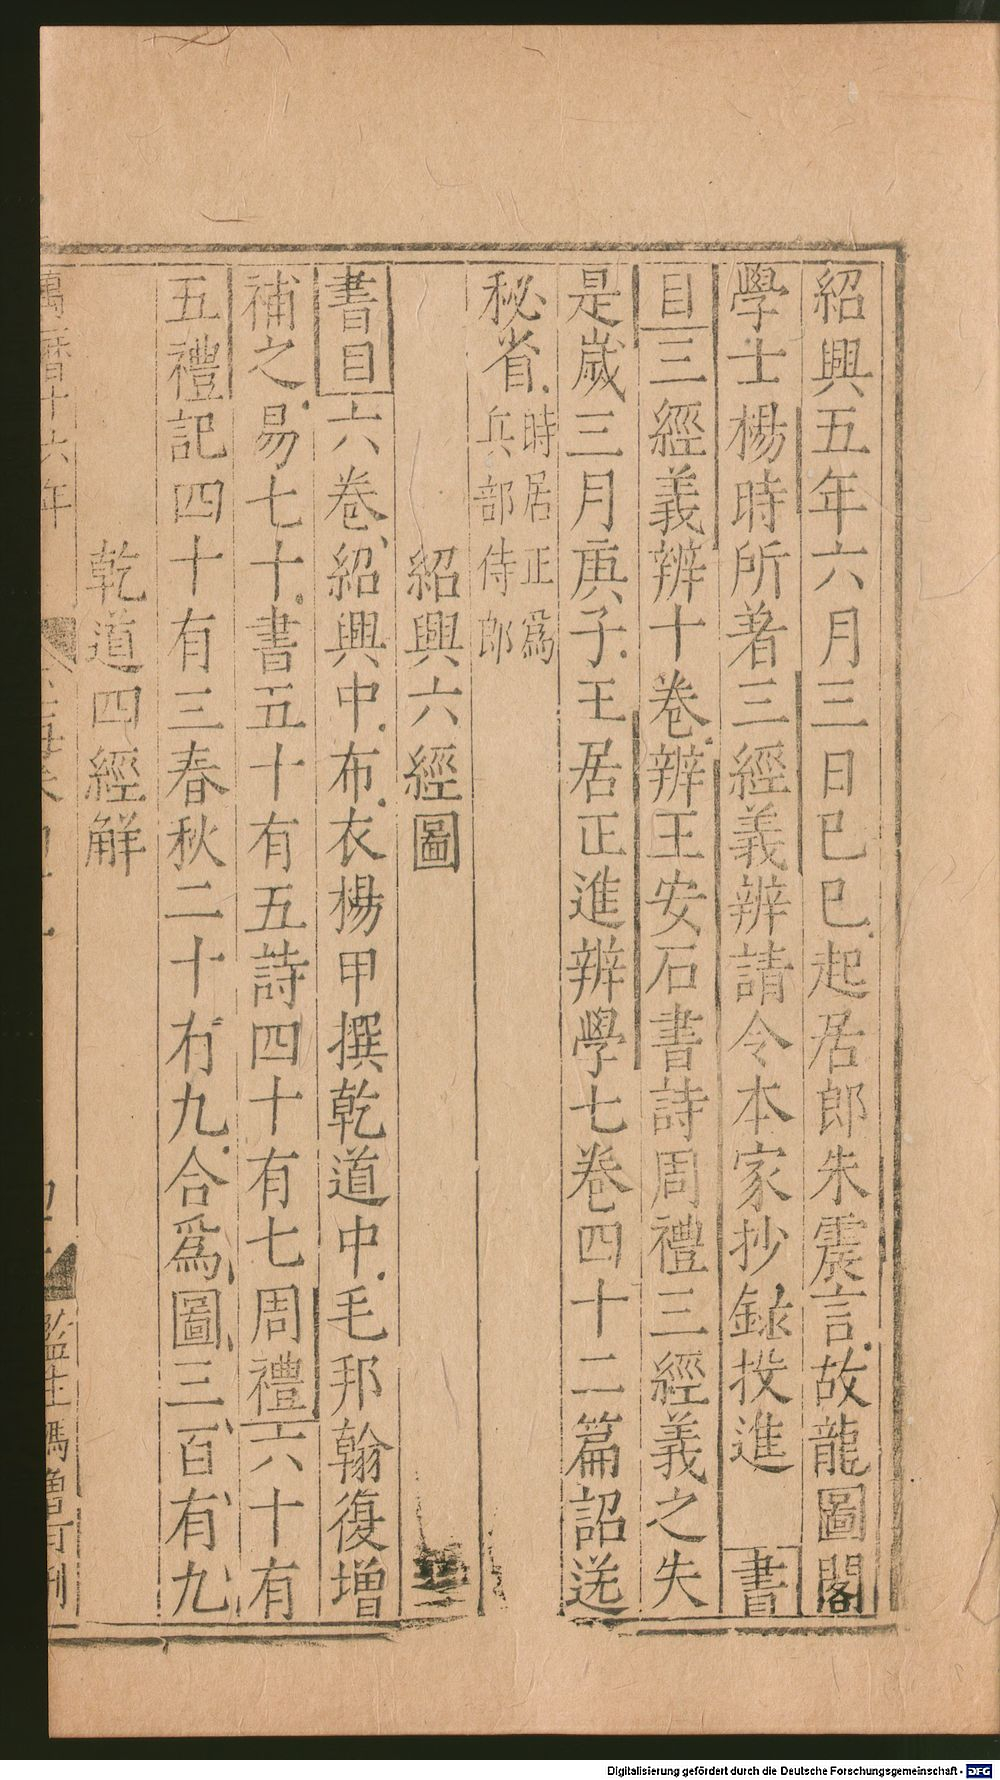 紹興五年六月三日已巳起居郎朱震言故龍圖閣
學士楊時所著三經義辨請令本家抄錄投進　書
目三經義辨十卷辨王安石書詩周禮三經義之失
是歲三月庚子王居正進辨學七卷四十二篇詔送
秘省時居正爲兵部侍郎
紹興六經圖
書目六卷紹興中布衣楊甲撰乾道中毛邦翰復增
補之易七十書五十有五詩四十有七周禮六十有
五禮記四十有三春秋二十有九合爲圖三百有九
乾道四經解
萬曆十六年
監生馮
Digitalisierung gefördert durch die Deutsche Forschungsgemeinschaft - DFG